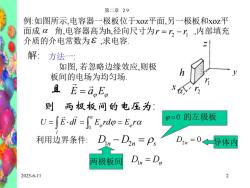 第二章 2-9
例:如图所示,电容器一极板位于xoz平面,另一极板和xoz平
面成 α 角,电容器高为h,径向尺寸为 r = r₂ − r₁ ,内部填充
介质的介电常数为 ε ,求电容.
解: 方法一:
如图, 若忽略边缘效应,则极
板间的场为均匀场.
且 E⃗ = a⃗_φ E_φ
则 两极板间的电压为:
U = ∫_l E⃗ · dl⃗ = ∫₀^α E_φ rdφ = E_φ rα
利用边界条件: D₁ₙ − D₂ₙ = ρ_s
φ=0 的左极板
D₂ₙ = 0
导体内
两极板间 D₁ₙ = D_φ
z
h
y
x
r₁
r₂
2023-6-11
2